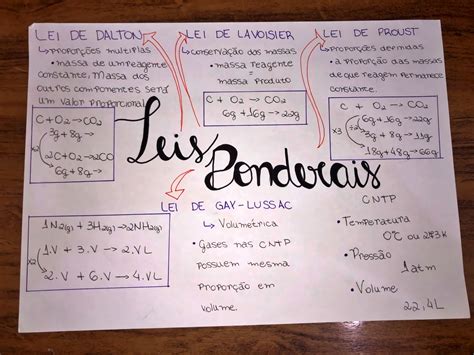 LEI DE DALTON
• PROPORÇÕES MULTIPLAS
• massa de um reagente
constante, Massa dos
outros componentes será
um valor proporcional
C + O₂ → CO₂
3g + 8g →
x2
2C + O₂ → 2CO
6g + 8g →
LEI DE LAVOISIER
• CONSERVAÇÃO DAS MASSAS
• massa reagente
=
massa produto
C + O₂ → CO₂
6g + 16g → 22g
LEI DE PROUST
• PROPORÇÕES DEFINIDAS
• A PROPORÇÃO DAS MASSAS
de que reagem permanece
constante.
C + O₂ → CO₂
6g + 16g → 22g
x3
÷2
3g + 8g → 11g
18g + 48g → 66g
Leis Ponderais
LEI DE GAY-LUSSAC
↳ Volumétrica
• Gases nas CNTP
possuem mesma
proporção em
volume.
1N₂(g) + 3H₂(g) → 2NH₂(g)
1.V + 3.V → 2.VL
x2
2.V + 6.V → 4.VL
CNTP
• Temperatura
0°C ou 273K
• Pressão
1atm
• Volume
22,4L